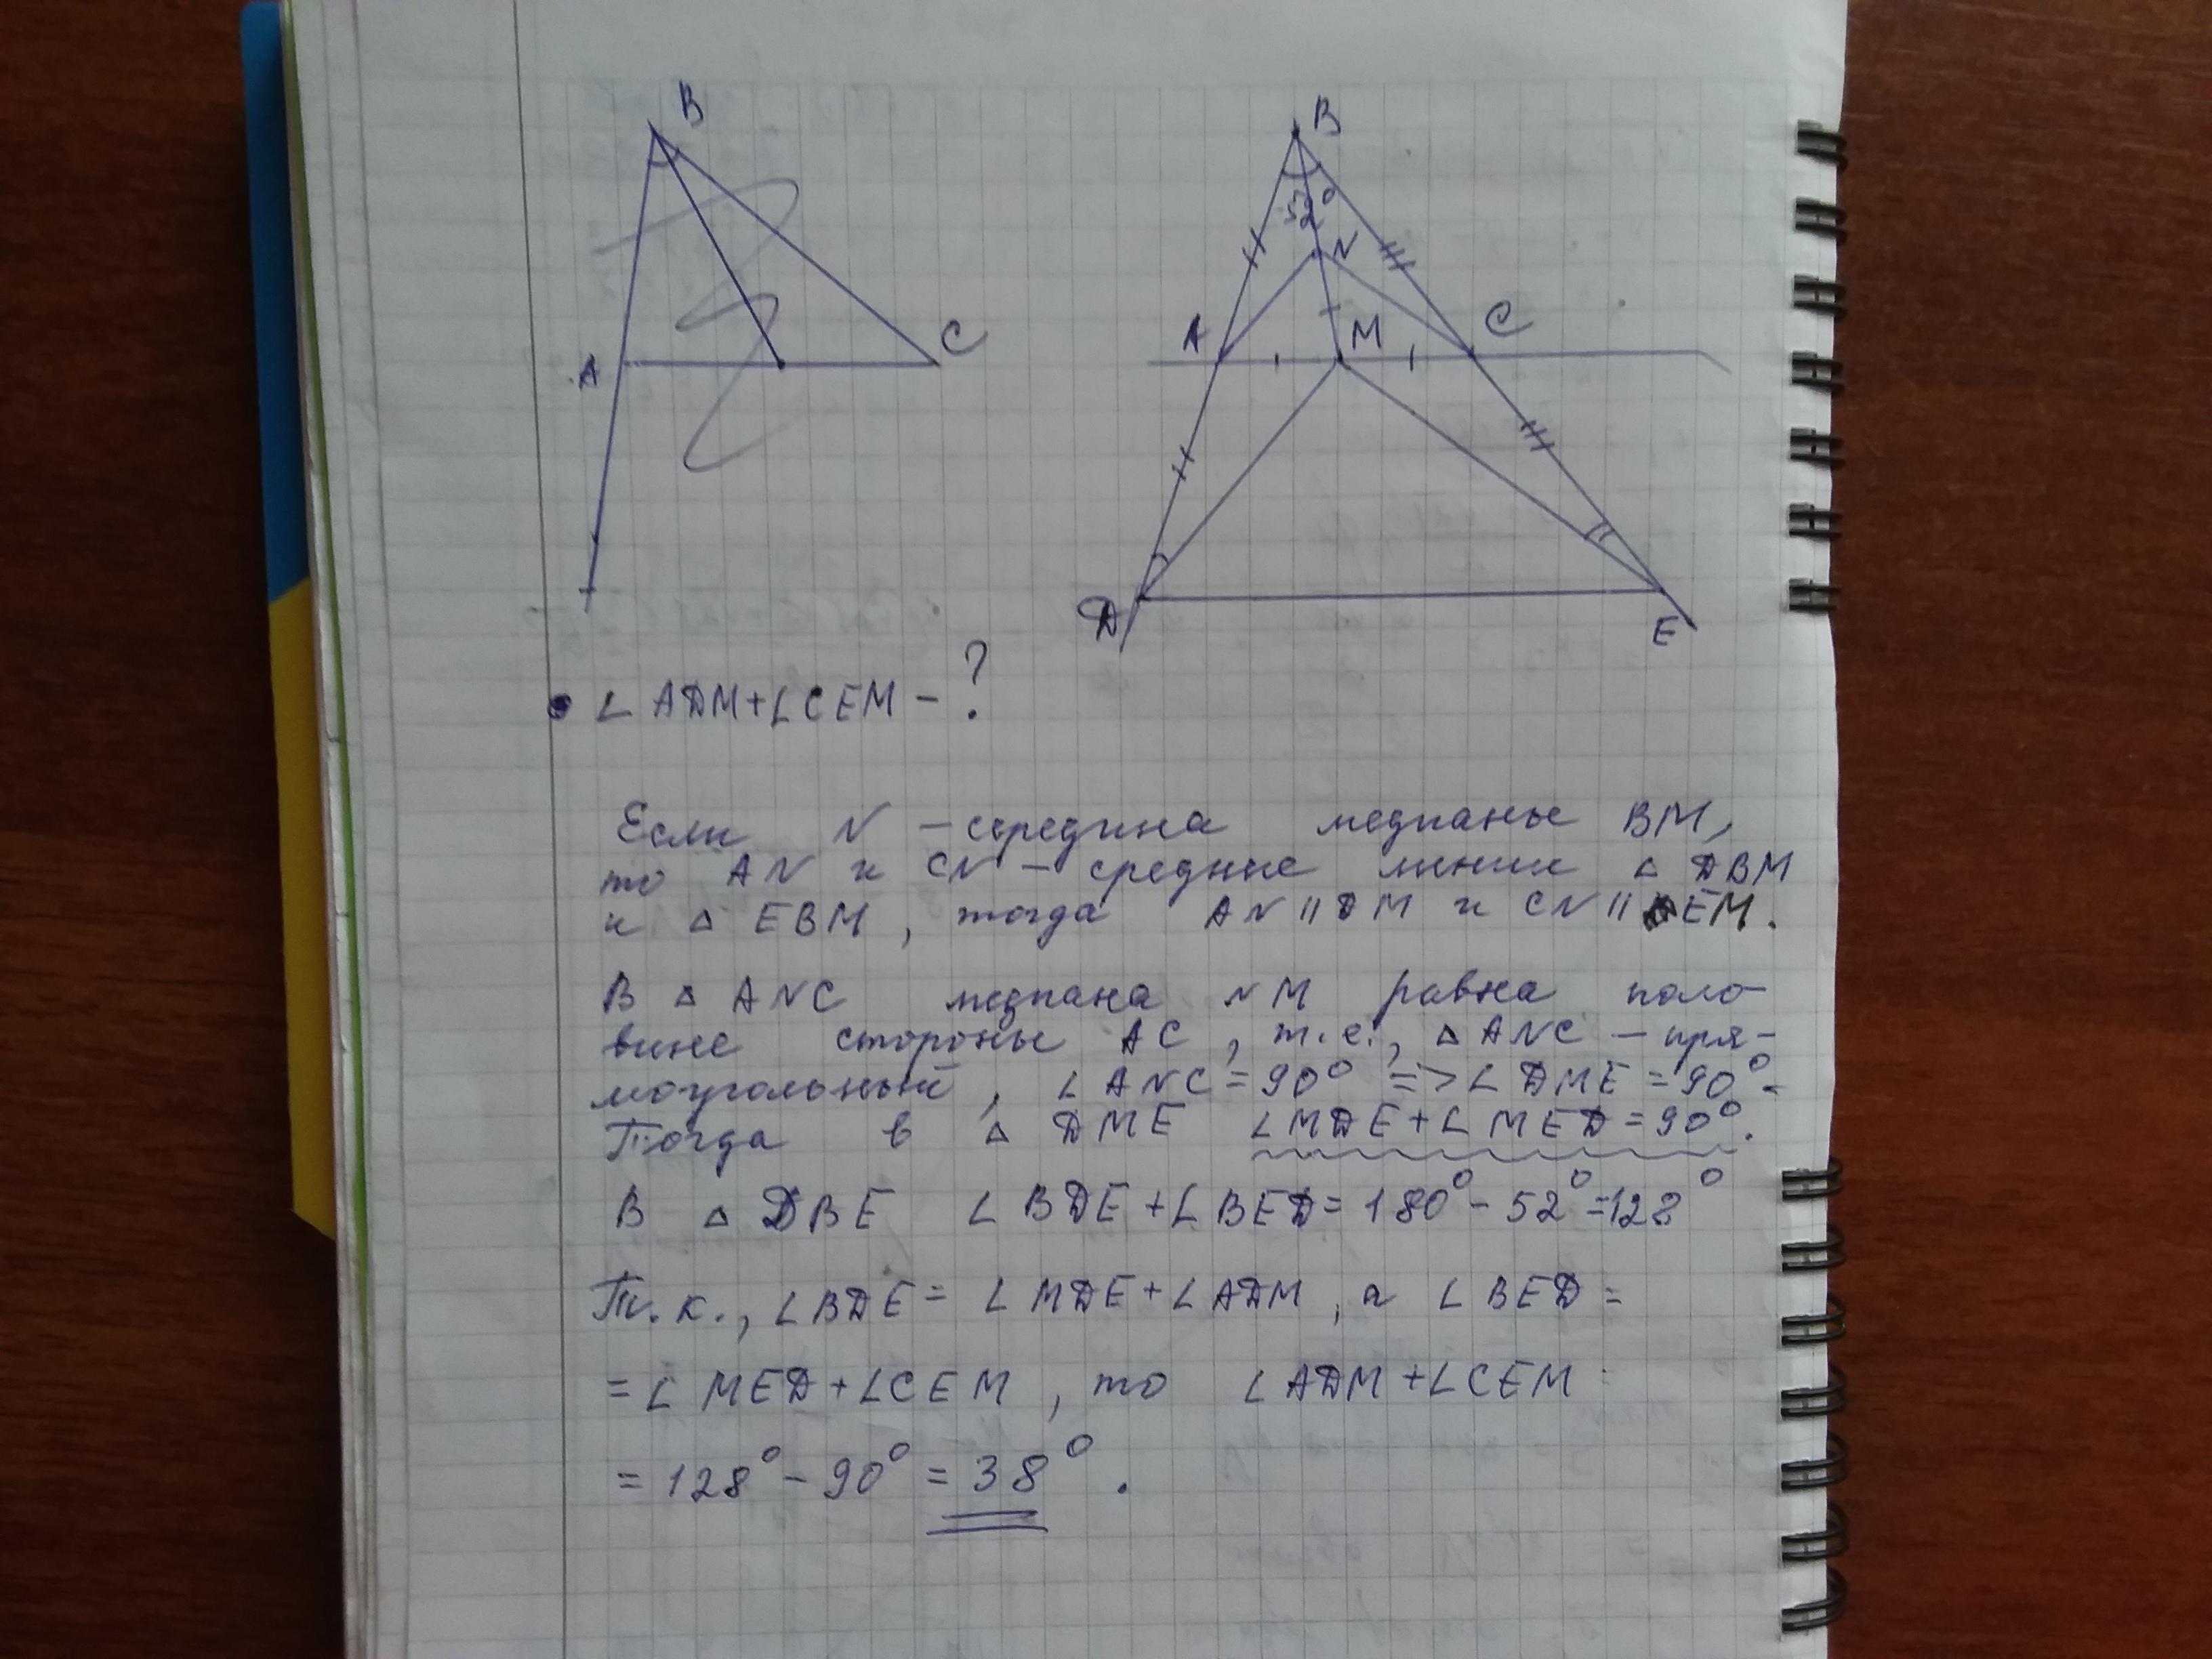 B
A
C
B
52°
N
A
M
C
D
E
∠ADM+∠CEM - ?
Если N - середина медианы BM,
то AN и CN - средние линии △ DBM
и △ EBM, тогда AN || DM и CN || EM.
В △ ANC медиана NM равна поло-
вине стороны AC, т.е., △ ANC - пря-
моугольный, ∠ANC = 90° => ∠DME = 90°.
Тогда в △ DME ∠MDE + ∠MED = 90°.
В △ DBE ∠BDE + ∠BED = 180° - 52° = 128°
Т.к., ∠BDE = ∠MDE + ∠ADM, а ∠BED =
= ∠MED + ∠CEM, то ∠ADM + ∠CEM =
= 128° - 90° = 38°.